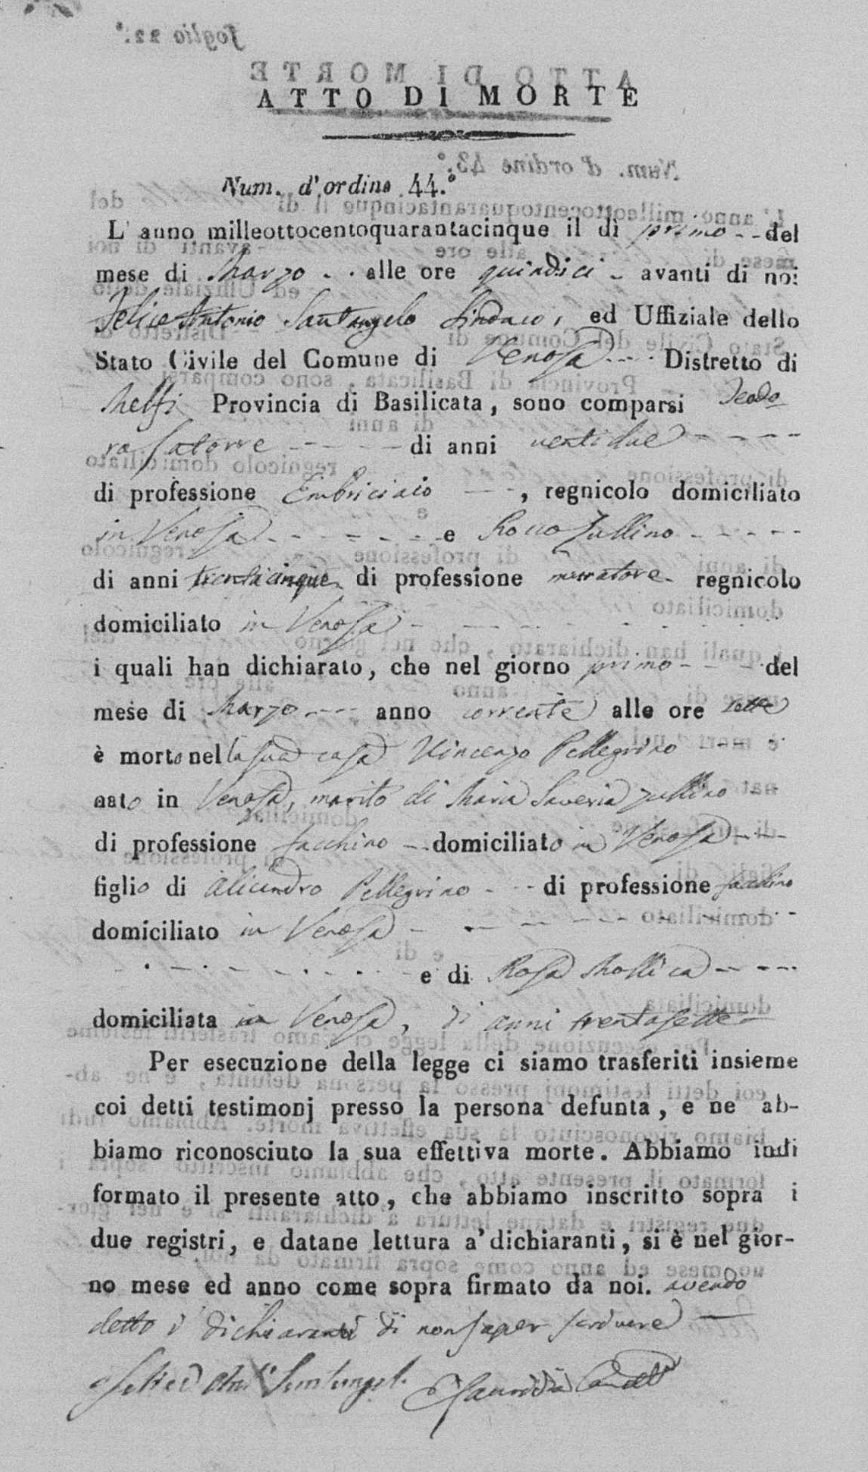 ATTO DI MORTE
Num. d'ordine 44.°
L'anno milleottocentoquarantacinque il di primo del
mese di Marzo alle ore quindici avanti di noi
Felice Antonio Santangelo Sindaco, ed Uffiziale dello
Stato Civile del Comune di Venosa Distretto di
Melfi Provincia di Basilicata, sono comparsi Teodo-
ro Satorre di anni ventidue
di professione Embriciaio, regnicolo domiciliato
in Venosa e Rocco Zullino
di anni trentacinque di professione regnicolo
domiciliato in Venosa
i quali han dichiarato, che nel giorno primo del
mese di Marzo anno corrente alle ore sette
è morto nella sua casa Vincenzo Pellegrino
nato in Venosa, marito di Maria Saveria Zullino
di professione facchino domiciliato in Venosa
figlio di Pellegrino di professione facchino
domiciliato in Venosa
e di Rosa Mollica
domiciliata in Venosa, di anni trentasette
Per esecuzione della legge ci siamo trasferiti insieme
coi detti testimonj presso la persona defunta, e ne ab-
biamo riconosciuto la sua effettiva morte. Abbiamo indi
formato il presente atto, che abbiamo inscritto sopra i
due registri, e datane lettura a' dichiaranti, si è nel gior-
no mese ed anno come sopra firmato da noi. avendo
detto i dichiaranti di non saper scrivere
Felice Ant° Santangel